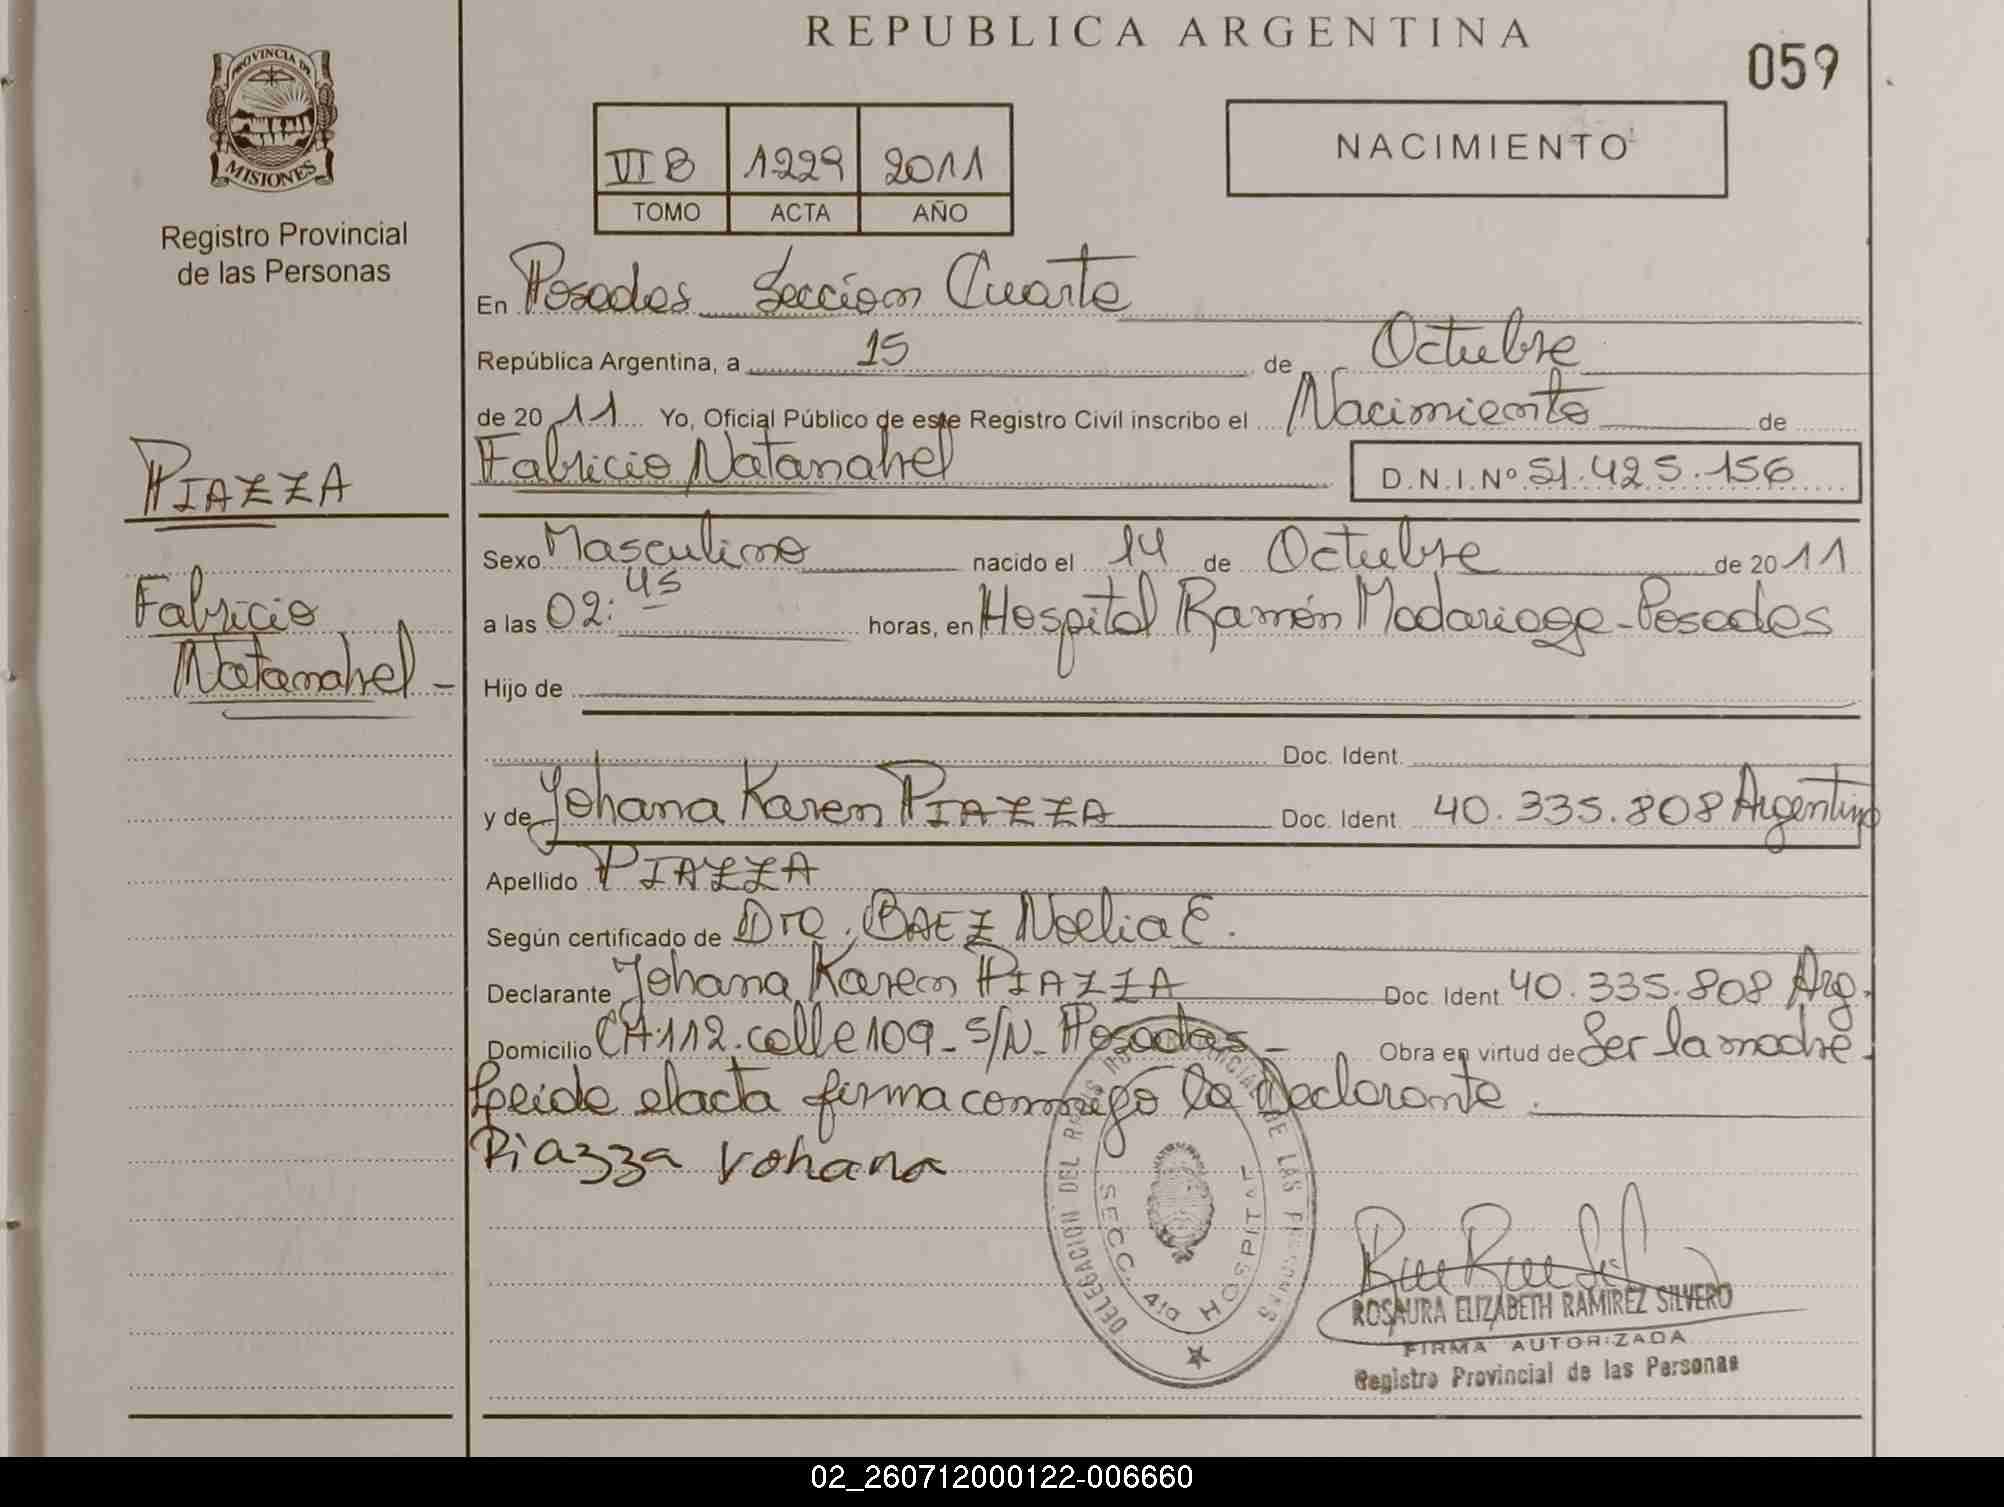 REPUBLICA ARGENTINA
059
PROVINCIA DE
MISIONES
Registro Provincial
de las Personas
VI B 1229 2011
TOMO ACTA AÑO
NACIMIENTO
En Posadas Sección Cuarta
República Argentina, a 15 de Octubre
de 20 11 Yo, Oficial Público de este Registro Civil inscribo el Nacimiento de
Fabricio Natanahel D.N.I.Nº 51.425.156
PIAZZA
Fabricio
Natanahel -
Sexo Masculino nacido el 14 de Octubre de 20 11
a las 02:45 horas, en Hospital Ramón Madariaga - Posadas
Hijo de
Doc. Ident.
y de Yohana Karen PIAZZA Doc. Ident 40.335.808 Argentina
Apellido PIAZZA
Según certificado de Dra. BAEZ Noelia E.
Declarante Yohana Karen PIAZZA Doc. Ident 40.335.808 Arg.
Domicilio CH.112. calle 109 - S/N - Posadas - Obra en virtud de Ser la madre.
Leida el acta firma conmigo la Declarante.
Piazza Yohana
DELEGACION DEL REG. PROVINCIAL DE LAS PERSONAS
SECC. 4ta HOSPITAL
ROSAURA ELIZABETH RAMIREZ SILVERO
FIRMA AUTORIZADA
Registro Provincial de las Personas
02_260712000122-006660